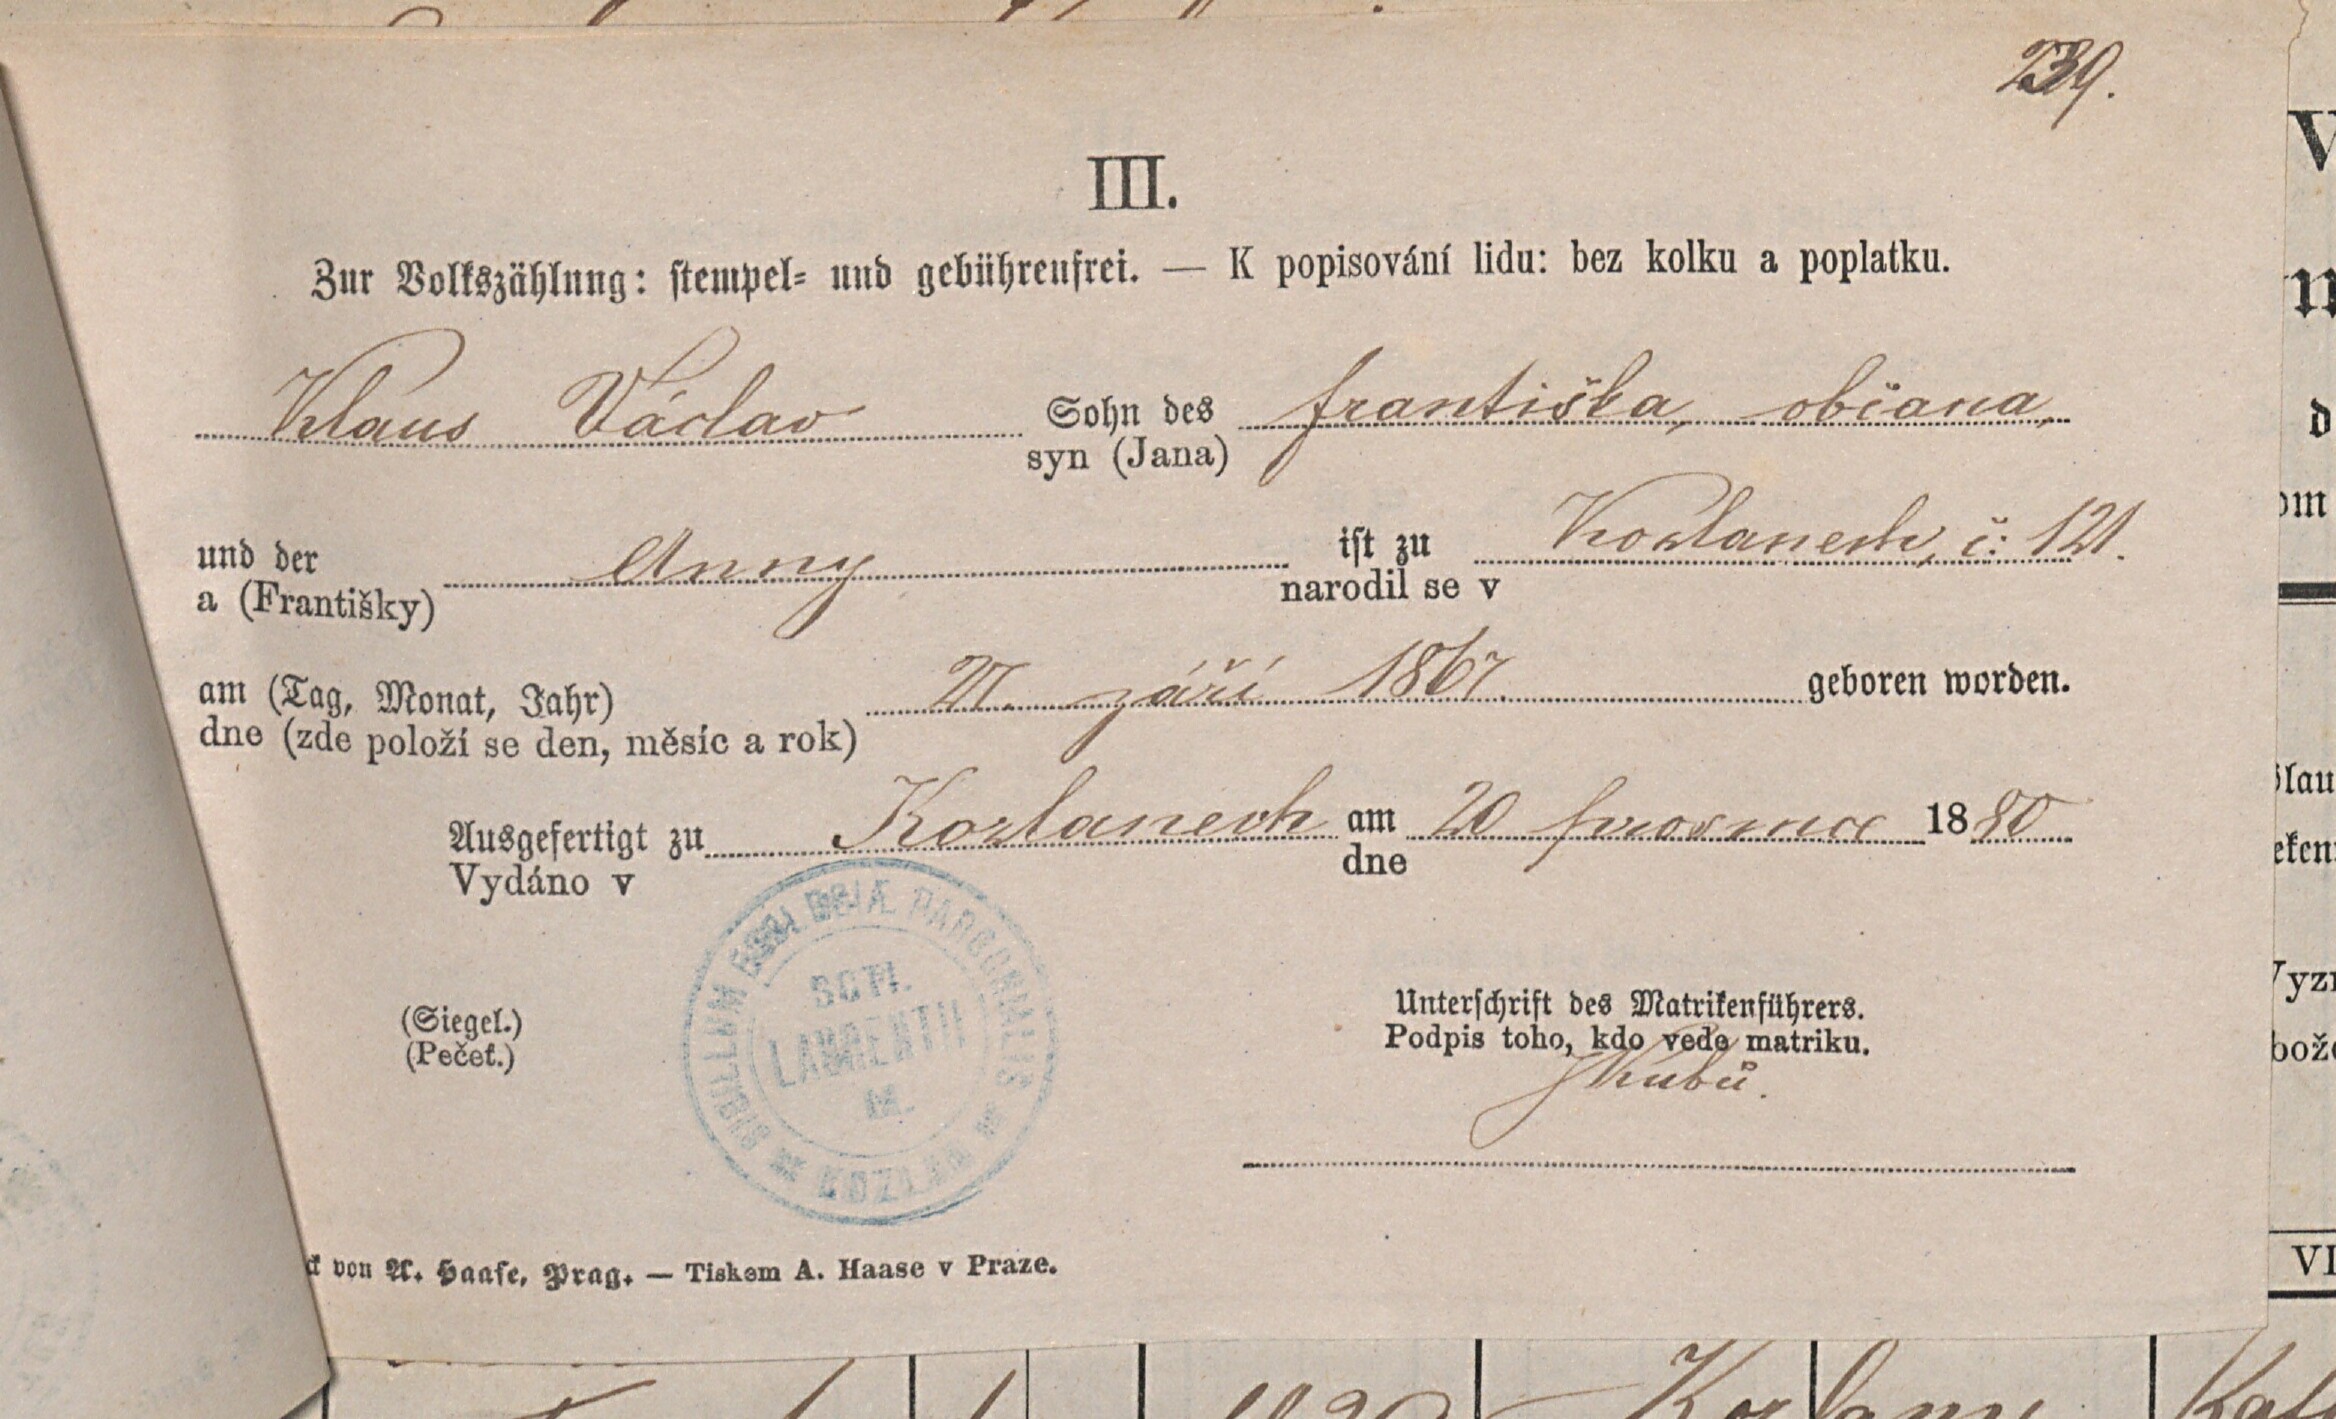 239.
III.
Zur Volkszählung: stempel- und gebührenfrei. — K popisování lidu: bez kolku a poplatku.
Klaus Václav Sohn des Františka, občana,
syn (Jana)
und der Anny ist zu Kozlanech, č. 121.
a (Františky) narodil se v
am (Tag, Monat, Jahr) 27. září 1867. geboren worden.
dne (zde položí se den, měsíc a rok)
Ausgefertigt zu Kozlanech am 20 prosince 1880
Vydáno v dne
SIGILLUM ECCLESIÆ PAROCHIALIS
SCTI.
LAURENTII
M.
KOZLAN
(Siegel.)
(Pečeť.)
Unterschrift des Matrikenführers.
Podpis toho, kdo vede matriku.
von A. Haase, Prag. — Tiskem A. Haase v Praze.
VI